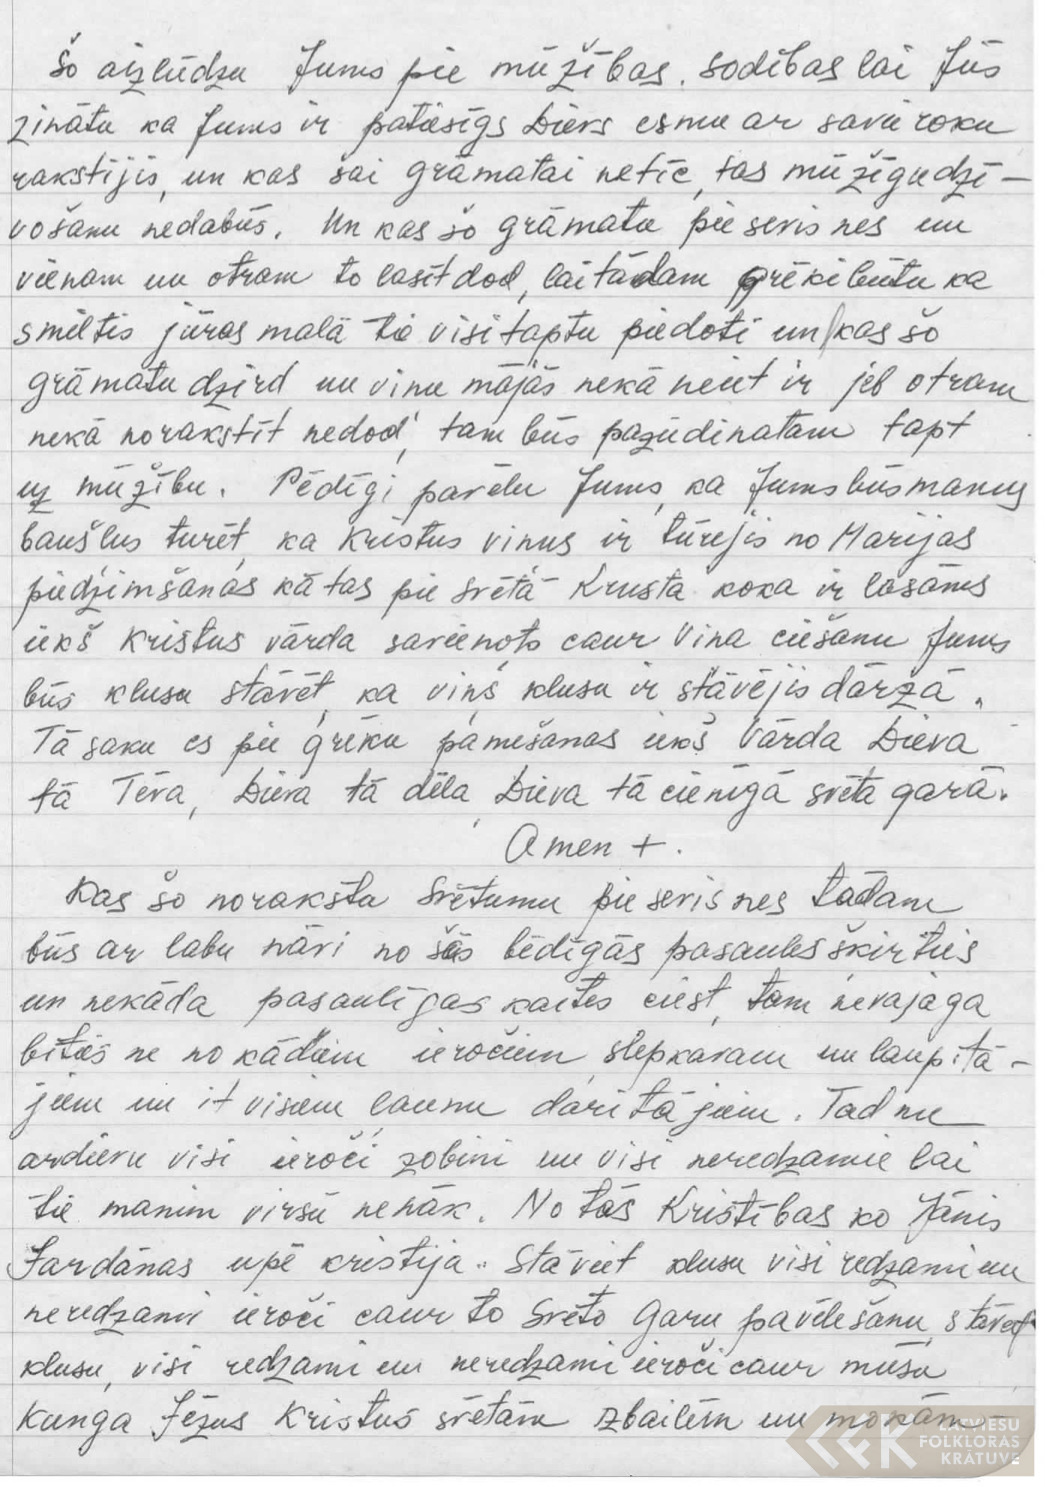 šo aizlūdzu Jums pie mūžības. sodības lai Jūs
zinātu ka Jums ir patiesīgs Dievs esmu ar savu roku
rakstījis, un kas šai grāmatai netic, tas mūžīgu dzī-
vošanu nedabūs. Un kas šo grāmatu pie sevis nes un
vienam un otram to lasīt dod, lai tādam grēki būtu ka
smiltis jūras malā tie visi taptu piedoti un kas šo
grāmatu dzird un viņu mājās nekā neiet ir jeb otram
nekā norakstīt nedod, tam būs pazudinatam tapt
uz mūžību. Pēdīgi pavēlu Jums, ka Jums būs manus
baušlus turēt, ka Kristus viņus ir tūrejis no Marijas
piedzimšanas kā tas pie svētā Krusta koka ir lasāms
iekš Kristus vārda savienots caur Viņa ciešanu Jums
būs klusu stāvēt, ka viņš klusu ir stāvējis dārzā.
Tā saku es pie grēku pamešanas iekš Vārda Dieva
tā Tēva, Dieva tā dēla, Dieva tā cienīgā svēta garā.
Amen +.
Kas šo norakstu Svētumu pie sevis nes tādam
būs ar labu nāvi no šās bēdīgās pasaules šķirties
un nekāda pasaulīgas kaites ciest, tam nevajaga
bīties ne no kādiem ieročiem, slepkavam un laupītā-
jiem un it visiem ļaunu darītājiem. Tad nu
ardievu visi ieroči zobini un visi neredzamie lai
tie manim virsū nenāk. No tās Kristības ko Jānis
Jardānas upē kristija. Stāviet klusu visi redzami un
neredzami ieroči caur to Svēto Garu pavēlešanu, stāvet
klusu, visi redzami un neredzami ieroči caur mūsu
Kunga Jēzus Kristus svētām izbailēm un mokām
LATVIEŠU
FOLKLORAS
KRĀTUVE